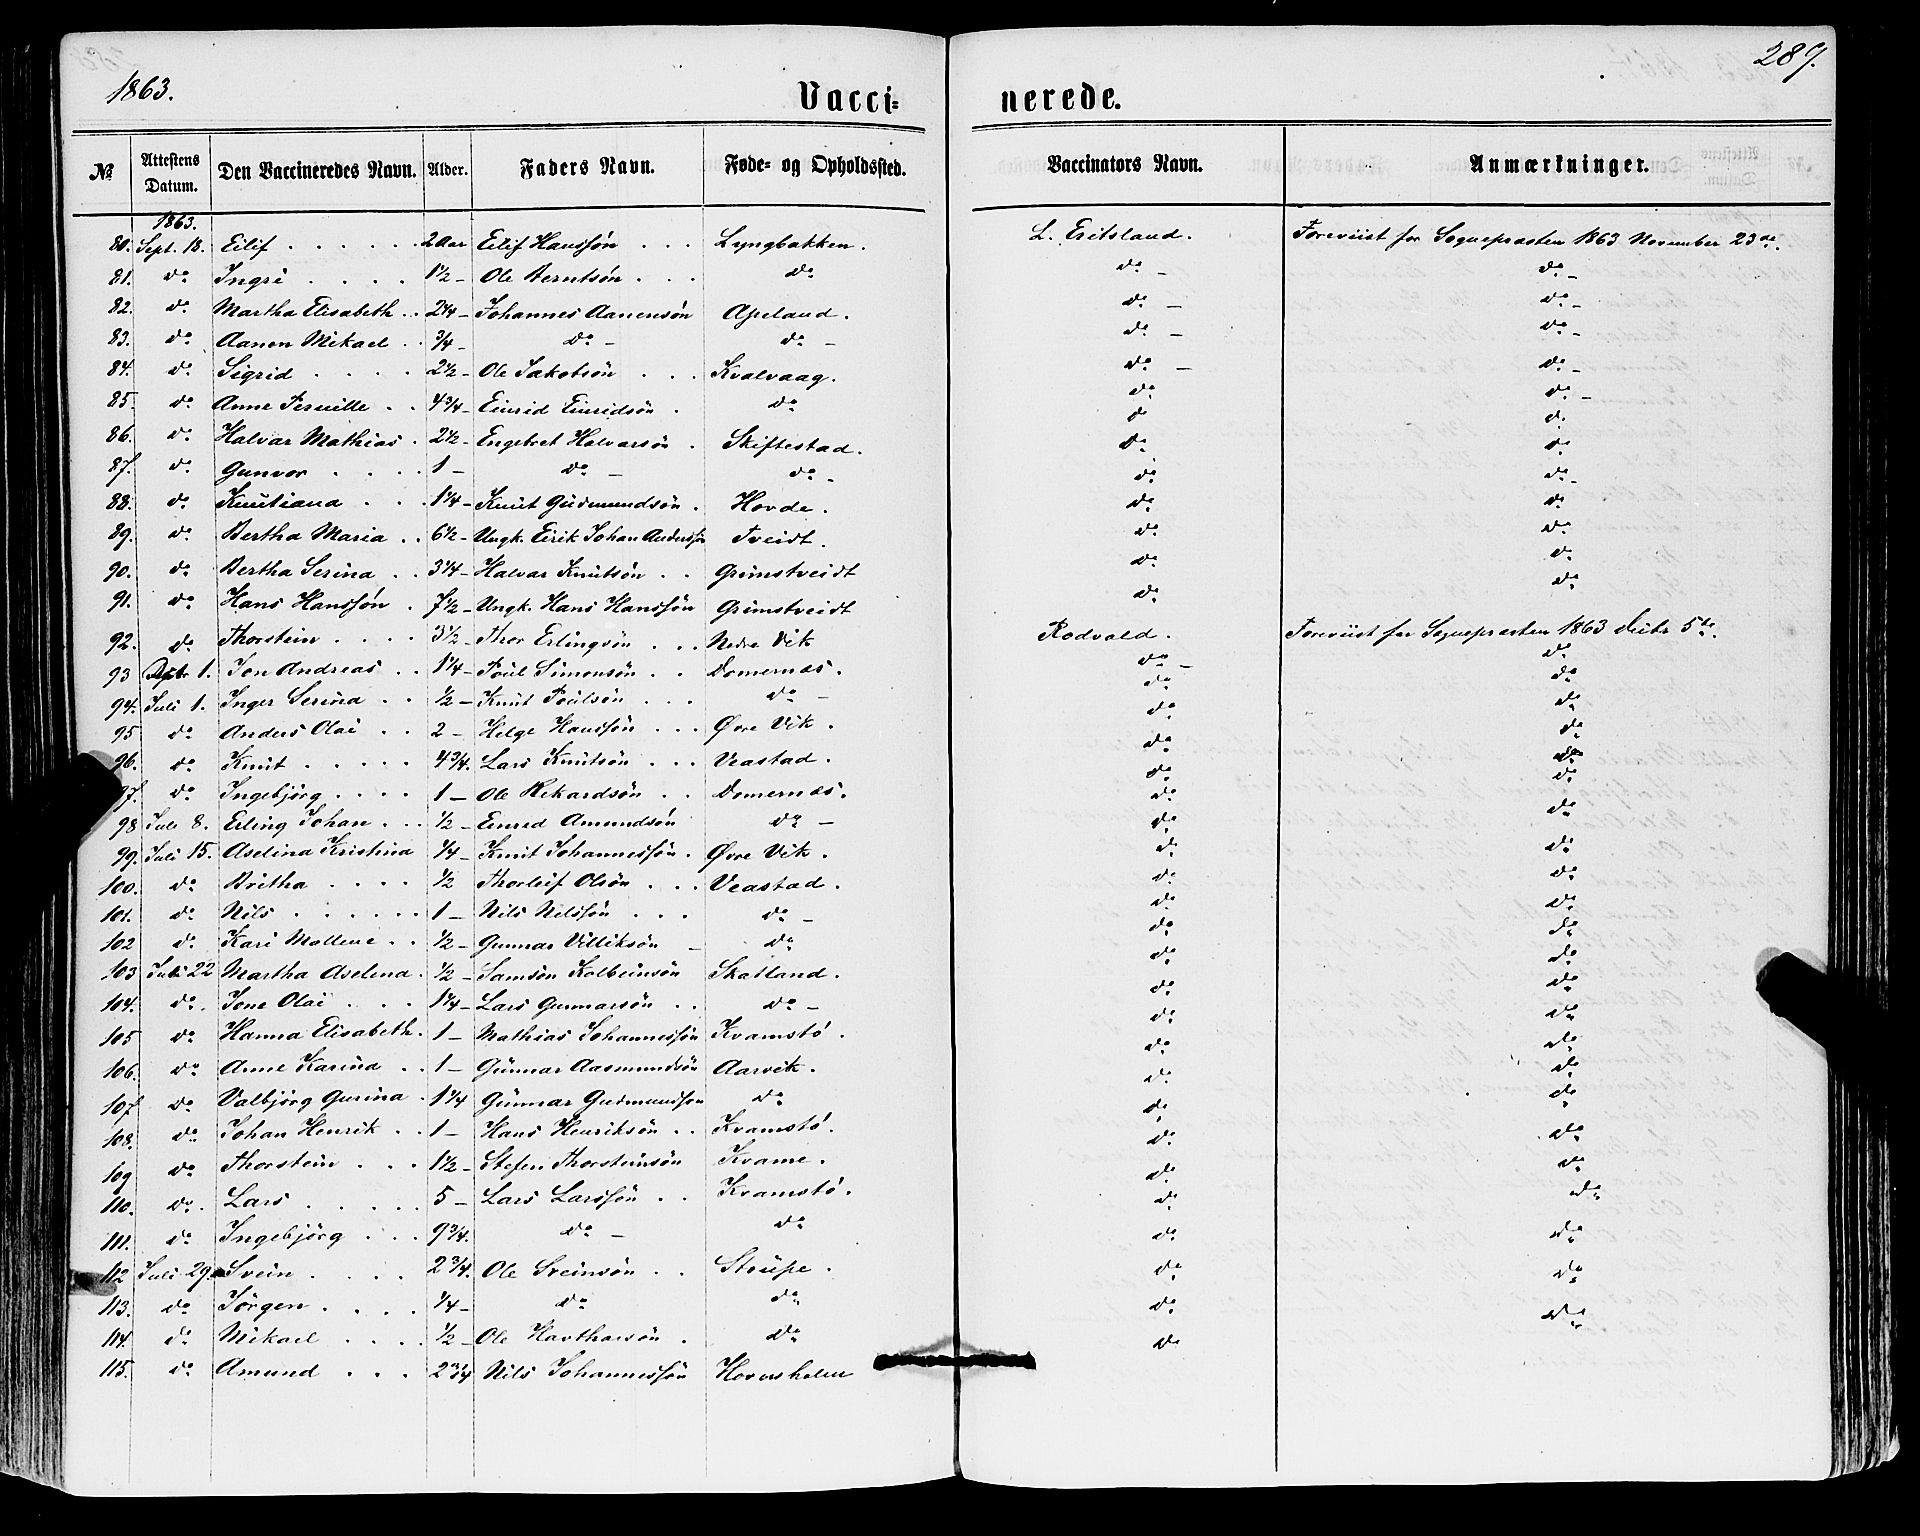 1863.
Vacci=
nerede.
289.
№
Attestens Datum.
Den Vaccineredes Navn.
Alder.
Faders Navn.
Føde- og Opholdssted.
Vaccinators Navn.
Anmærkninger.
1863.
80. Sept. 18. Eilif 2 Aar Eilif Hanssøn Lyngbakken. L. Eritsland. Foreviist for Sognepræsten 1863 November 23de.
81. do Ingri 1½ - Ole Berntsøn do do - do -
82. do Martha Elisabeth 2¼ - Johannes Aanensøn Apeland. do - do -
83. do Aanen Mikael ¾ - do - do - do - do -
84. do Sigrid 2½ - Ole Jakobsøn Kvalvaag. do - do -
85. do Anne Pernille 4¾ - Einrid Einridsøn do do do -
86. do Halvar Mathias 2½ - Engebret Halvarsøn Skiftestad. do do
87. do Gunvor 1 - do - do - do do
88. do Knutiana 1¼ - Knut Gudmundsøn Hovde. do do -
89. do Bertha Maria 6½ - Ungk. Eirik Johan Anderssøn Tveidt. do do
90. do Bertha Serina 3¼ - Halvar Knutsøn Grimstveidt do do
91. do Hans Hanssøn 7½ - Ungk. Hans Hanssøn Grimstveidt do do
92. do Thorstein 3½ - Thor Erlingsøn Nedre Vik Rodvald. Foreviist for Sognepræsten 1863 Decbr 5te.
93 1. Jon Andreas 1¼ - Poul Simonsøn Domernæs. do - do
94. Juli 1. Inger Serina ½ - Knut Poulsøn do - do do
95 do Anders Olai 2 - Helge Hanssøn Øvre Vik. do do
96. do Knut 4¾. Lars Knutsøn Veastad. do do
97. do Ingebjørg 1 - Ole Rikardsøn Domernæs. do do
98 Juli 8. Erling Johan ½ - Einred Amundsøn do - do do
99. Juli 15. Aselina Kristina ¼ - Knut Johannessøn. Øvre Vik. do do
100. do Britha ½ Thorleif Olsøn Veastad. do do
101. do Nils 1 - Nils Nilssøn do - do do
102 do Kari Mallene ½ - Gunnar Villiksøn - do do do
103 Juli 22 Martha Aselena ½ - Samson Kolbeinsøn Skatland. do do
104. do. Jone Olai 1¼ - Lars Gunnarsøn do - do do
105 do Hanna Elisabeth 1 - Mathias Johannessøn Kvamstø. do do
106. do Anne Karina 1 - Gunnar Aasmundsøn Aarvik. do do
107 do Valbjörg Gurina 1¼ Gunnar Gudmundson do do do
108. do Johan Henrik 1 - Hans Henriksøn Kvamstø. do do
109 do Thorstein 1½ - Stefen Thorsteinsøn Kvame. do do
110. do. Lars 5 - Lars Larssøn Kvamstø. do do
111. do Ingebjörg 9¾. do - do do do
112 Juli 29. Svein 2¾. Ole Sveinsøn Stoupe. do do
113. do Jörgen ¼ - do do do do
114. do Mikael ½ - Ole Havtharsøn do do do
115. do Amund 2¾ Nils Johannessøn Hovershalm do